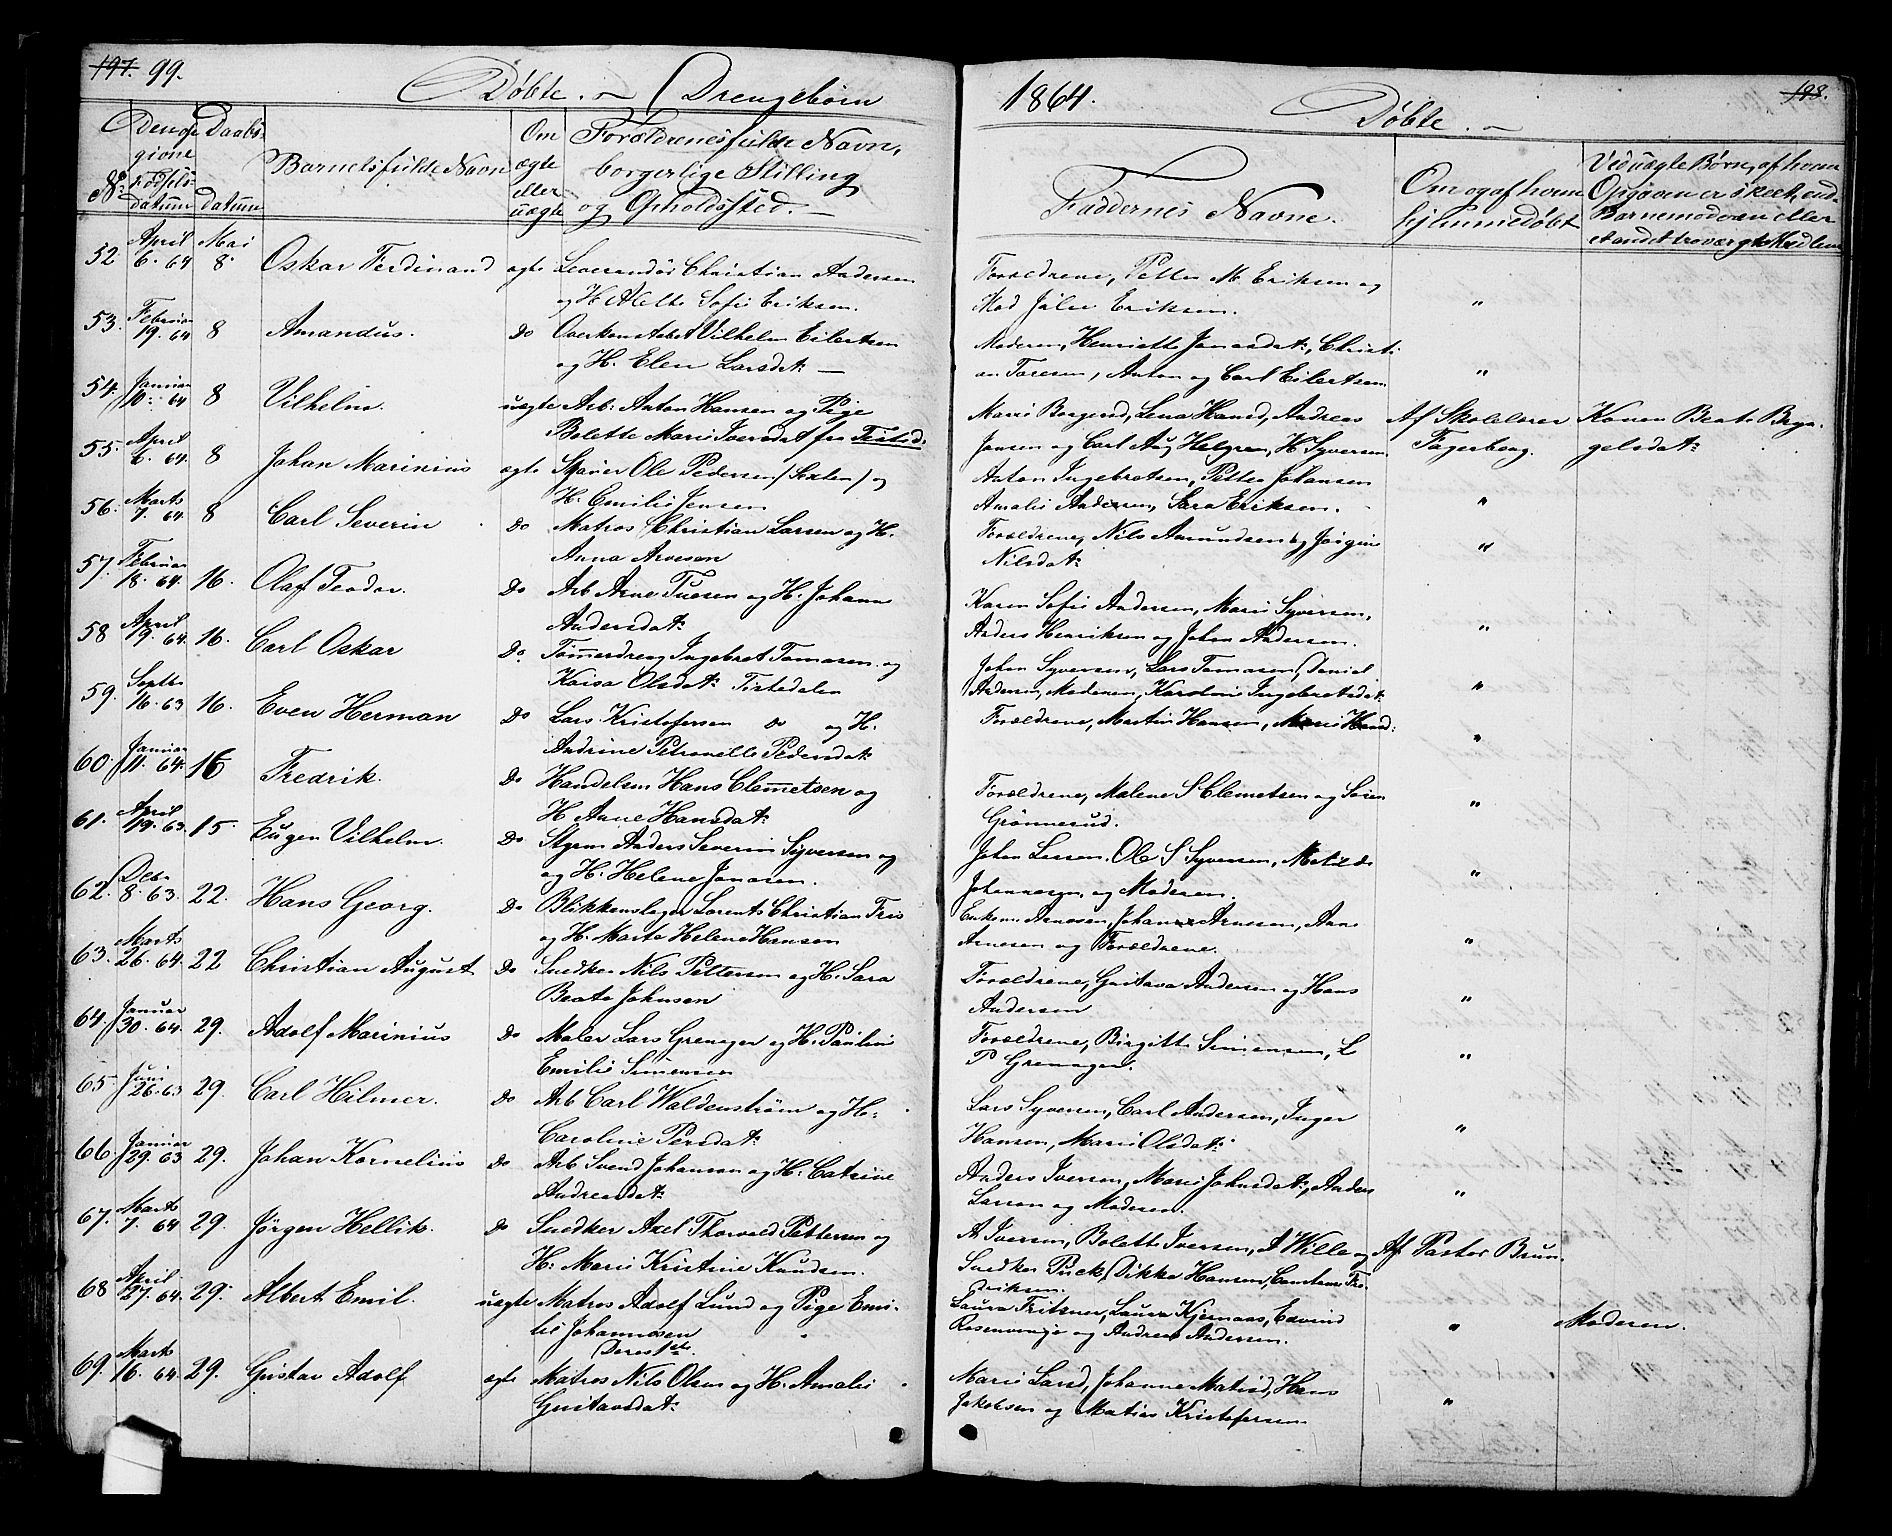 197. 99.
Døbte. Drengebørn
No
Den opgivne Fødselsdatum
Daabsdatum
Barnets fulde Navn
Om ægte eller uægte
Forældrenes fulde Navn,
borgerlige Stilling
og Opholdssted.
52 April 6. 64 Mai 8. Oskar Ferdinand ægte Leverandør Christian Andersen
og H. Alette Sofie Eriksen.
53. Februar 19. 64 8 Amandus. Do Overkonstabel Vilhelm Eilertsen
og H. Elen Larsdat:
54. Januar 10. 64 8 Vilhelm. uægte Arb: Anton Hansen og Pige
Bolette Marie Iversdat fra Tistedd.
55. April 6. 64. 8 Johan Marinius ægte Skauer Ole Pedersen og
H. Emilie Jensen
56. Marts 7. 64 8 Carl Severin Do Matros Christian Larsen og H.
Anna Arvesen
57. Februar 18. 64. 16. Olaf Teodor. Do Arb Arne Tuesen og H. Johanne
Andersdat:
58 April 19. 64. 16. Carl Oskar Do. Tømmerdreng Ingebret Tomasen og
Kaisa Olsdat: Tistedalen
59. Septbr 16. 63 16. Even Herman Do Lars Kristofersen do og H.
Andrine Petronelle Pedersdat:
60 Januar 11. 64. 16 Fredrik. Do Handelsm Hans Clemetsen og
H Anne Hansdat:
61. April 19. 63. 15. Eugen Vilhelm. Do Styrm Anders Severin Syversen og
og H. Helene Jonasen.
62. Deb. 8. 63. 22. Hans Georg. Do Blikkenslager Lorents Christian Friis
og H. Marte Helene Hansen
63. Marts 26. 64. 22 Christian August Do Snedker Nils Pettersen og H. Sara
Beate Johnsen
64 Januar 30. 64 29. Adolf Marinius Do Maler Lars Grenager og H. Pauline
Emilie Simensen
65 Juni 26. 63 29. Carl Hilmer. Do Arb Carl Waldenstrøm og H.
Caroline Persdat:
66 Januar 29. 63 29. Johan Kornelius Do Arb Svend Johansen og H. Catrine
Andreasdat:
67. Marts 7. 64 29. Jørgen Hellik. Do Snedker Axel Thorvald Pettersen og
H. Marie Kristine Knudsen.
68 April 27. 64. 29. Albert Emil. uægte Matros Adolf Lund og Pige Emi-
lie Johannesen
Deres 1ste.
69. Marts 16. 64. 29. Gustav Adolf ægte Matros Nils Olsen og H. Amalie
Gustavsdat:
1864.
Døbte.
198.
Faddernes Navne.
Om og af hvem
hjemmedøbt
Ved uægte Børn, af hvem
Opgaven er skeet, end.
Barnemoderen eller
andet troværgt Kudlem
Forældrene, Petter M. Eriksen og "
Mad Julie Eriksen.
Moderen, Henriette Jonasdat:, Christi- "
an Toresen, Anton og Carl Eilertsen
Marie Borgersd, Lena Hansd, Andreas Af Skolelærer Konen Beate Bryn-
Jensen og Carl Aug Helgren, H Syversen Fagerborg. gelsdat:
Anton Ingebretsen, Petter Johansen
Amalie Andersen, Sara Eriksen. "
Forældrene, Nils Amundsen og Jørgine "
Nilsdat:
Karen Sofie Andersen, Marie Syversen,
Anders Henriksen og Johan Andersen. "
Johan Syversen, Lars Tomasen, Daniel
Andersen, Moderen, Karoline Ingebretsdat: "
Forældrene, Martin Hansen, Marie Hansd: "
Forældrene, Malene S Clemetsen og Søren "
Grønnerud.
Johan Larsen. Ole S Syversen, Matilde "
Johannesen, og Moderen.
Enkem Arnesen, Johan Arnesen, Anne
Arnesen og Forældrene. "
Forældrene, Gustava Andersen og Hans "
Andersen
Forældrene, Birgitte Simensen, L "
P Grenager.
Lars Syversen, Carl Andersen, Inger "
Hansen, Marie Olsdat:
Anders Iversen, Marie Johnsdat:, Anders "
Larsen og Moderen.
A Iversen, Bolette Iversen, A Wille og Af Pastor Brun
Snedker Puck, Dikka Hansen, Constance Fre-
driksen.
Laura Fritzner, Laura Kjernaas, Edvind " Moderen.
Rosenvinge og Andreas Andersen.
Marie Larsd, Johanne Matisd, Hans "
Jakobsen og Matias Kristofersen